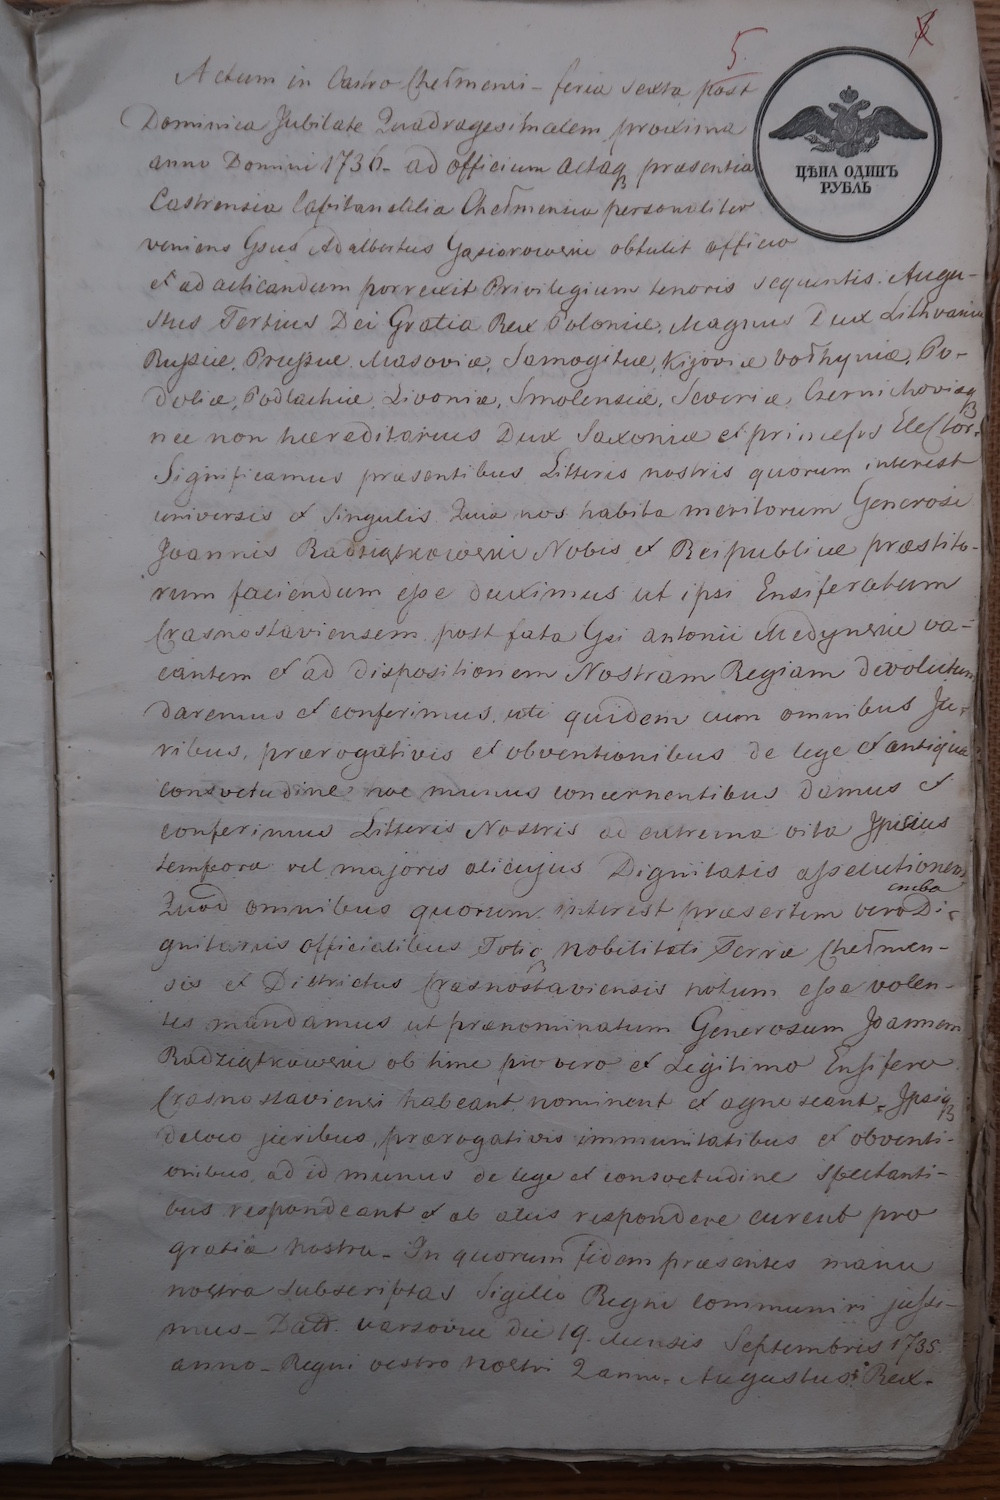 5.
Actum in Castro Chełmensi – feria sexta post
Dominica Jubilate Quadragesimalem proxima
anno Domini 1736 – ad officium actaq præsentia
ЦѢНА ОДИНЪ
РУБЛЬ
Castrensia Capitanealia Chełmensia personaliter
veniens Gsus Adalbertus Gąsiorowski obtulit officio
et ad acticandum porrexit Privilegium tenoris sequentis. Augu-
stus Tertius Dei Gratia Rex Poloniæ, Magnus Dux Lithvaniæ
Rußiæ, Prußiæ Masoviæ, Samogitiæ, Kijoviæ Vołhyniæ, Po-
doliæ, Podlachiæ, Livoniæ, Smolensiæ, Severiæ, Czernichoviæq
nec non hæreditarius Dux Saxoniæ et princeps Elector.
Significamus præsentibus Litteris nostris quorum interest
universis et singulis Quia nos habita meritorum Generosi
Joannis Radziątkowski Nobis et Reipublicæ præstito-
rum faciendum eße duximus ut ipsi Ensiferatum
Crasnostaviensem post fata Gsi antonii Medynski va-
cantem et ad dispositionem Nostram Regiam devolutum
daremus et conferimus, uti quidem cum omnibus Ju-
ribus, prærogativis et obventionibus de lege et antiqua
consvetudine hoc munus concernentibus damus et
conferimus Litteris Nostris ad extrema vita Jpsius
tempora vel majoris alicujus Dignitatis aßecutionem
Quod omnibus quorum interest præsertim vero Di-
gnitariis officialibus Totiq nobilitati Terræ Chełmen-
sis et Districtus Crasnostaviensis notum eße volen-
tes mandamus ut prænominatum Generosum Joannem
Radziątkowski ob hinc pro vero et Legitimo Ensifero
Crasnostaviensi habeant nominent et agnoscant, Jpsiq
de loco juribus, prærogativis immunitatibus et obventi-
onibus, ad id munus de lege et consvetudine spectanti-
bus respondeant et ab aliis respondere curent pro
gratia nostra – In quorum fidem præsentes manu
nostra subscriptas Sigillo Regni communiri jußi-
mus – Datt. varsoviæ die 19. mensis Septembris 1735
anno – Regni vestro nostri 2 anno – Augustus Rex –